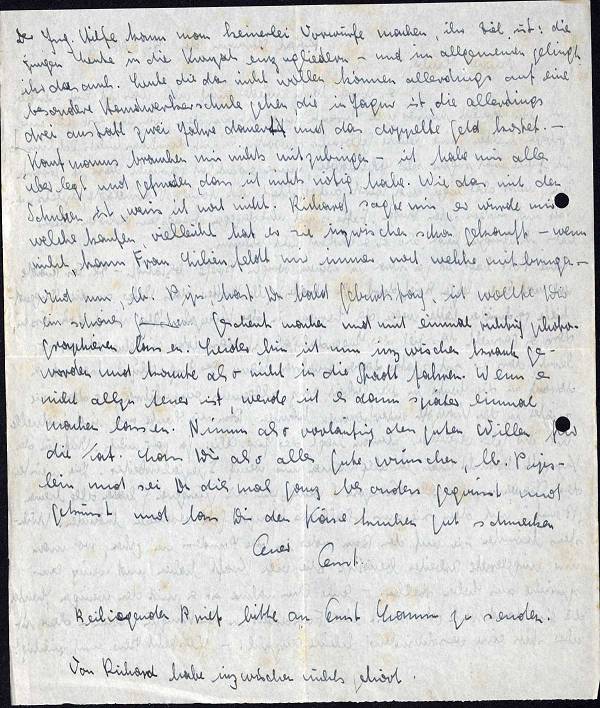 Der Jug. Hilfe kann man keinerlei Vorwürfe machen, ihr Ziel ist: die
jungen Leute in die Kwuzah einzugliedern – und im allgemeinen gelingt
ihr das auch. Leute die das nicht wollen können allerdings auf eine
besondere Handwerkerschule gehen die in Jagur ist, die allerdings
drei anstatt zwei Jahre dauert und das doppelte Geld kostet. –
Kaufmanns brauchen mir nichts mitzubringen – ich habe mir alles
überlegt und gefunden dass ich nichts nötig habe. Wie das mit den
Schuhen ist, weiss ich noch nicht. Richard sagte mir, er würde mir
welche kaufen, vielleicht hat er sie inzwischen schon gekauft – wenn
nicht, kann Frau Lilienfeldt mir immer noch welche mitbringen –
Und nun, lb. Pips hast Du bald Geburtstag, ich wollte Dir
ein schönes Geschenk machen und mich einmal richtig photo-
graphieren lassen. Leider bin ich nun inzwischen krank ge-
worden und konnte also nicht in die Stadt fahren. Wenn es
nicht allzu teuer ist, werde ich es dann später einmal
machen lassen. Nimm also vorläufig den guten Willen für
die Tat. Lass Dir also alles Gute wünschen, lb. Pips-
lein und sei Du diesmal ganz besonders gegrüsst und
geküsst und lass Dir den Käsekuchen gut schmecken
Euer Ernst.
Beiliegenden Brief bitte an Ernst zu senden.
Von Richard habe inzwischen nichts gehört.